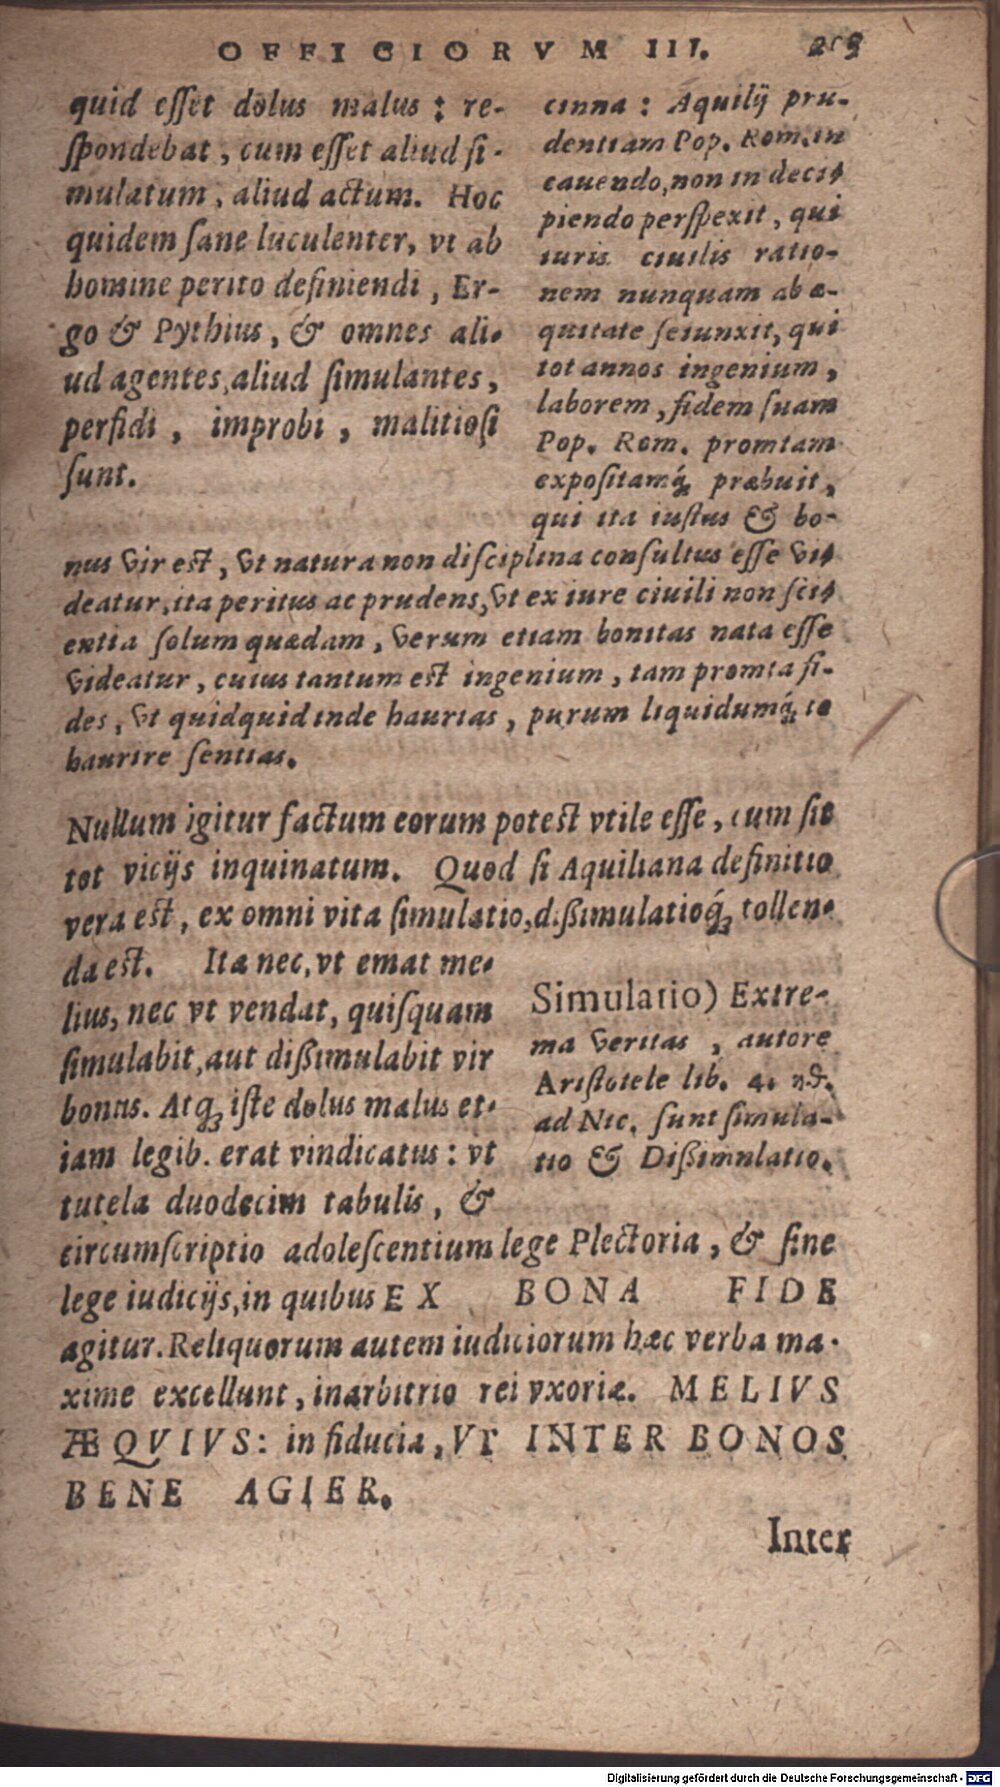 OFFICIORVM III.
quid eſſet dolus malus : re-
ſpondebat, cum eſſet aliud ſi-
mulatum, aliud actum. Hoc
quidem ſane luculenter, vt ab
homine perito definiendi, Er-
go & Pythius, & omnes ali-
ud agentes, aliud ſimulantes,
perfidi, improbi, malitioſi
ſunt.
cinna : Aquilij pru-
dentiam Pop. Rom. in
cauendo, non in deci-
piendo perſpexit, qui
iuris ciuilis ratio-
nem nunquam ab æ-
quitate ſeiunxit, qui
tot annos ingenium,
laborem, fidem ſuam
Pop. Rom. promtam
expoſitamq́; præbuit,
qui ita iuſtus & bo-
nus vir est, vt natura non diſciplina conſultus eſſe vi-
deatur, ita peritus ac prudens, vt ex iure ciuili non ſci-
entia ſolum quædam, verum etiam bonitas nata eſſe
videatur, cuius tantum est ingenium, tam promta fi-
des, vt quidquid inde haurias, purum liquidumq́; te
haurire ſentias.
Nullum igitur factum eorum potest vtile eſſe, cum ſit
tot vicijs inquinatum. Quod ſi Aquiliana definitio
vera est, ex omni vita ſimulatio, dißimulatioq́; tollen-
da est. Ita nec, vt emat me-
lius, nec vt vendat, quiſquam
ſimulabit, aut dißimulabit vir
bonus. Atq; iſte dolus malus et-
iam legib. erat vindicatus : vt
tutela duodecim tabulis, &
Simulatio) Extre-
ma veritas, autore
Ariſtotele lib. 4. ηθ.
ad Nic. ſunt ſimula-
tio & Dißimnlatio.
circumſcriptio adoleſcentium lege Plectoria, & ſine
lege iudicijs, in quibus EX BONA FIDE
agitur. Reliquorum autem iudiciorum hæc verba ma-
xime excellunt, in arbitrio rei vxoriæ. MELIVS
ÆQVIVS: in fiducia, VT INTER BONOS
BENE AGIER.
Inter
Digitalisierung gefördert durch die Deutsche Forschungsgemeinschaft - DFG